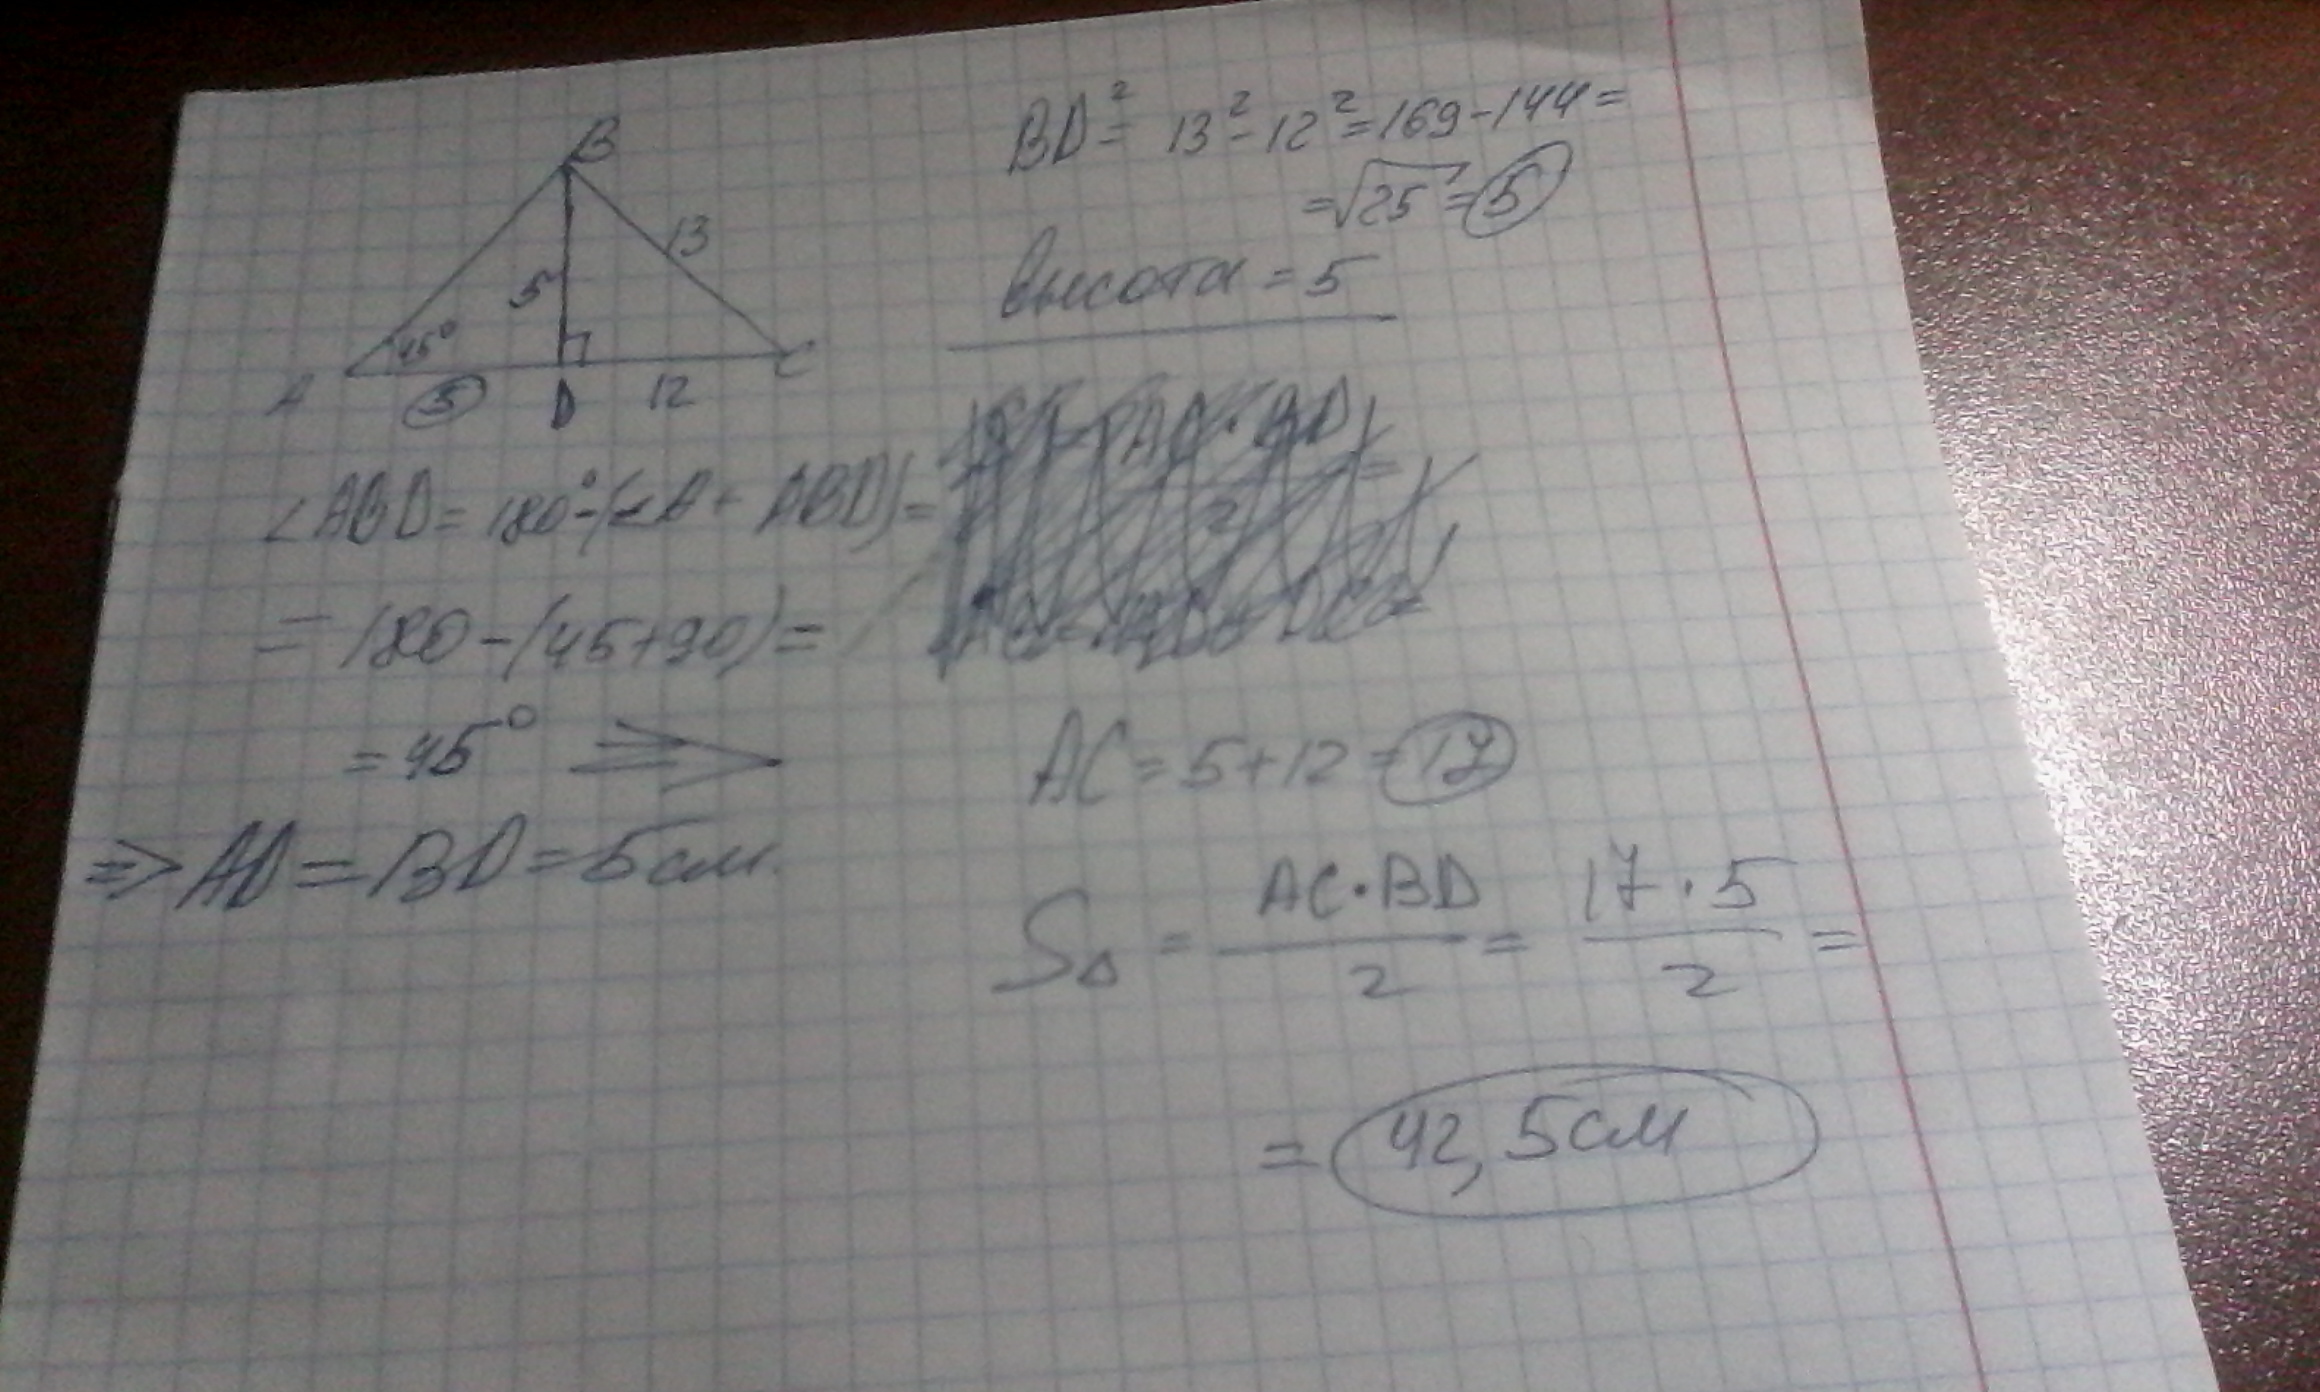 B
13
5
45°
A
5
D
12
C
∠ABD = 180° - (∠A - ABD) =
= 180 - (45 + 90) =
= 45° =>
=> AD = BD = 5см.
BD² = 13² - 12² = 169 - 144 =
= √25 = 5
высота = 5
AC · BD
2
AC = 5 + 12 = 17
S∆ = AC · BD / 2 = 17 · 5 / 2 =
= 42,5см